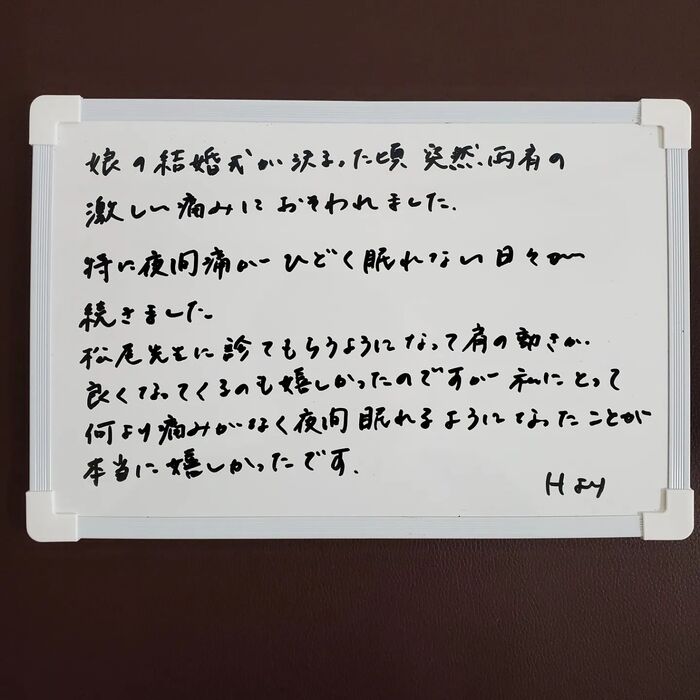 娘の結婚式が決まった頃 突然、両肩の
激しい痛みにおそわれました.
特に夜間痛がひどく眠れない日々が
続きました。
松尾先生に診てもらうようになって肩の動きが.
良くなってくるのも嬉しかったのですが 私にとって
何より痛みがなく夜間眠れるようになったことが
本当に嬉しかったです.